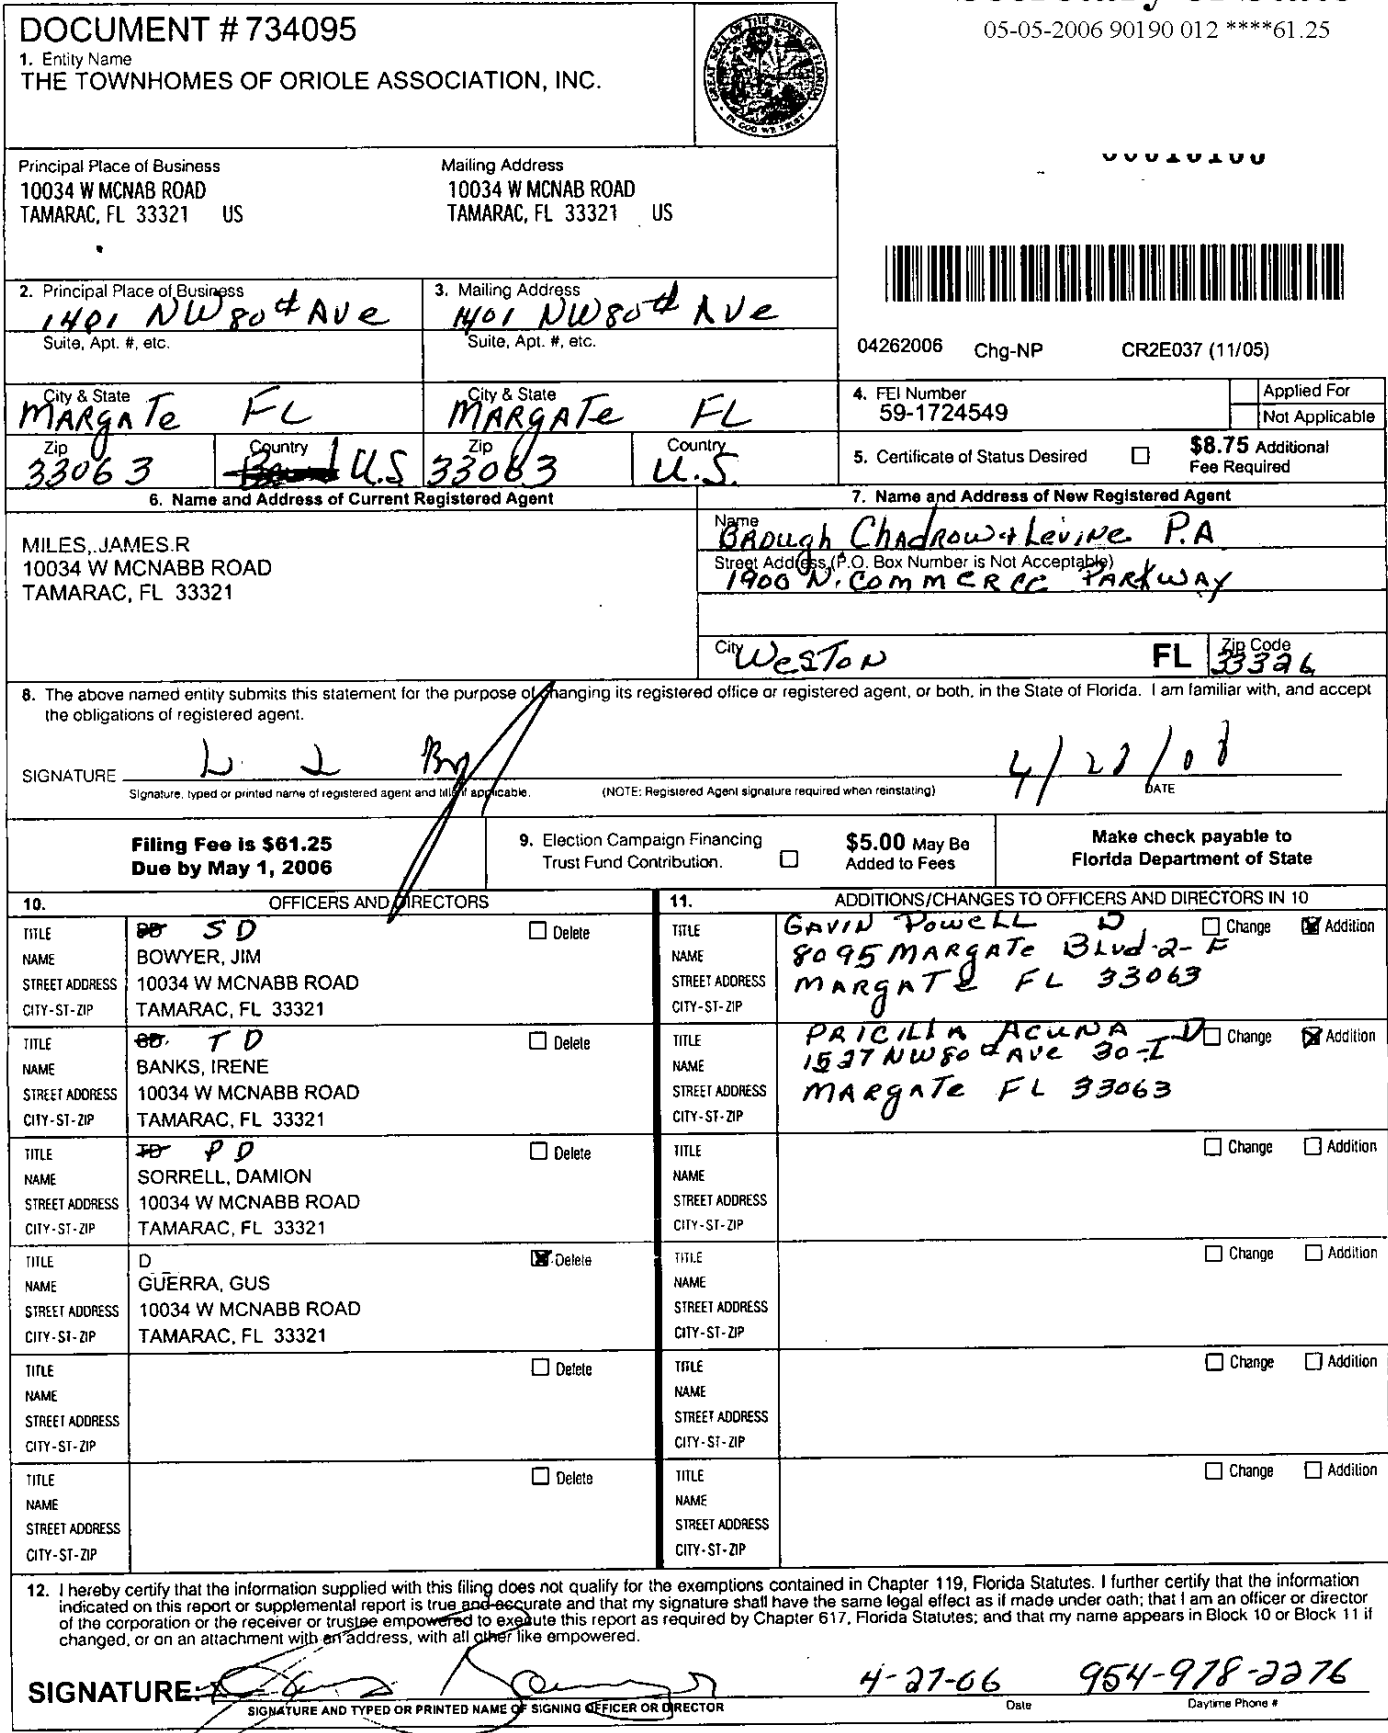 DOCUMENT # 734095
05-05-2006 90190 012 ****61.25
1. Entity Name
THE TOWNHOMES OF ORIOLE ASSOCIATION, INC.
GREAT SEAL OF THE STATE OF FLORIDA
IN GOD WE TRUST
Principal Place of Business
10034 W MCNAB ROAD
TAMARAC, FL 33321 US
Mailing Address
10034 W MCNAB ROAD
TAMARAC, FL 33321 US
2. Principal Place of Business
1401 NW 80th Ave
Suite, Apt. #, etc.
City & State
MARGATE FL
Zip
33063
Country
U.S
3. Mailing Address
1401 NW 80th Ave
Suite, Apt. #, etc.
City & State
MARGATE FL
Zip
33063
Country
U.S.
04262006 Chg-NP CR2E037 (11/05)
4. FEI Number
59-1724549
Applied For
Not Applicable
5. Certificate of Status Desired
$8.75 Additional
Fee Required
6. Name and Address of Current Registered Agent
MILES, JAMES R
10034 W MCNABB ROAD
TAMARAC, FL 33321
7. Name and Address of New Registered Agent
Name
BROUGH CHADROW + LEVINE P.A
Street Address (P.O. Box Number is Not Acceptable)
1900 N. COMMERCE PARKWAY
City
WESTON
FL
Zip Code
33326
8. The above named entity submits this statement for the purpose of changing its registered office or registered agent, or both, in the State of Florida. I am familiar with, and accept
the obligations of registered agent.
SIGNATURE
Signature, typed or printed name of registered agent and title if applicable.
(NOTE: Registered Agent signature required when reinstating)
DATE
Filing Fee is $61.25
Due by May 1, 2006
9. Election Campaign Financing
Trust Fund Contribution.
$5.00 May Be
Added to Fees
Make check payable to
Florida Department of State
10. OFFICERS AND DIRECTORS
TITLE SD Delete
NAME BOWYER, JIM
STREET ADDRESS 10034 W MCNABB ROAD
CITY-ST-ZIP TAMARAC, FL 33321
TITLE TD Delete
NAME BANKS, IRENE
STREET ADDRESS 10034 W MCNABB ROAD
CITY-ST-ZIP TAMARAC, FL 33321
TITLE TD PD Delete
NAME SORRELL, DAMION
STREET ADDRESS 10034 W MCNABB ROAD
CITY-ST-ZIP TAMARAC, FL 33321
TITLE D Delete
NAME GUERRA, GUS
STREET ADDRESS 10034 W MCNABB ROAD
CITY-ST-ZIP TAMARAC, FL 33321
TITLE Delete
NAME
STREET ADDRESS
CITY-ST-ZIP
TITLE Delete
NAME
STREET ADDRESS
CITY-ST-ZIP
11. ADDITIONS/CHANGES TO OFFICERS AND DIRECTORS IN 10
TITLE GAVIN POWELL D Change Addition
NAME 8095 MARGATE Blvd-2-F
STREET ADDRESS MARGATE FL 33063
CITY-ST-ZIP
TITLE PRICILLA ACUNA D Change Addition
NAME 1527 NW 80th AVE 30-I
STREET ADDRESS MARGATE FL 33063
CITY-ST-ZIP
TITLE Change Addition
NAME
STREET ADDRESS
CITY-ST-ZIP
TITLE Change Addition
NAME
STREET ADDRESS
CITY-ST-ZIP
TITLE Change Addition
NAME
STREET ADDRESS
CITY-ST-ZIP
TITLE Change Addition
NAME
STREET ADDRESS
CITY-ST-ZIP
12. I hereby certify that the information supplied with this filing does not qualify for the exemptions contained in Chapter 119, Florida Statutes. I further certify that the information
indicated on this report or supplemental report is true and accurate and that my signature shall have the same legal effect as if made under oath; that I am an officer or director
of the corporation or the receiver or trustee empowered to execute this report as required by Chapter 617, Florida Statutes; and that my name appears in Block 10 or Block 11 if
changed, or on an attachment with an address, with all other like empowered.
SIGNATURE: 4-27-06 954-978-2276
SIGNATURE AND TYPED OR PRINTED NAME OF SIGNING OFFICER OR DIRECTOR Date Daytime Phone #